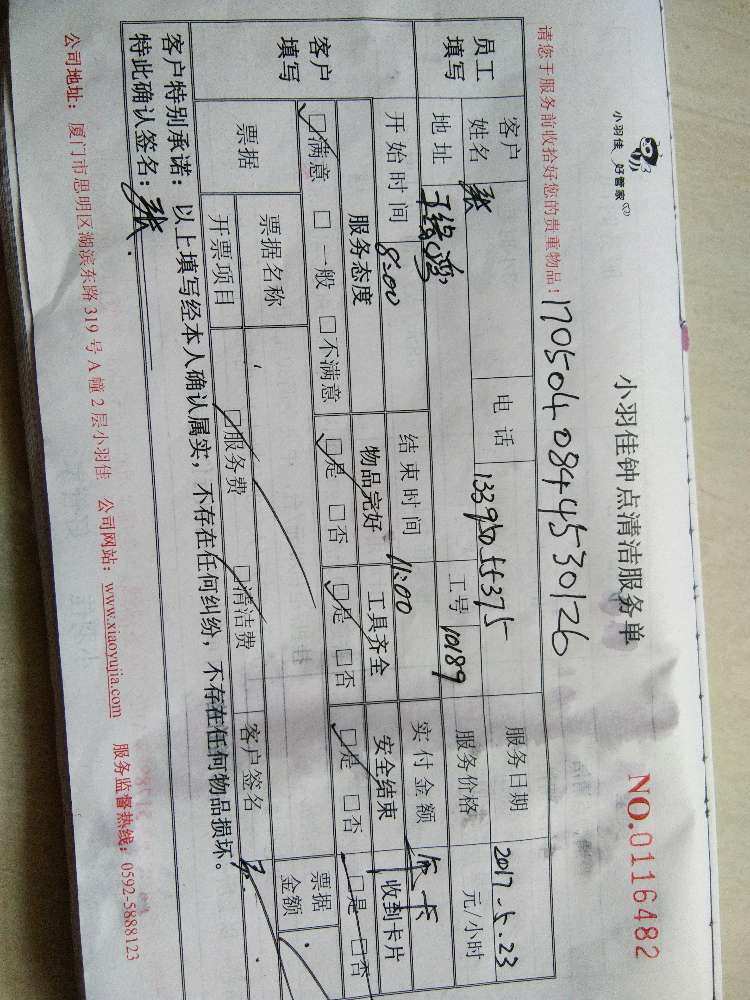 小羽佳 好管家
小羽佳钟点清洁服务单
NO.0116482
请您于服务前收拾好您的贵重物品！
170504084453026
员工填写
客户姓名 张 电话 服务日期 2017.5.23
地址 工号 10189 服务价格 元/小时
开始时间 8:00 结束时间 11:00 实付金额
客户填写
服务态度 物品完好 工具齐全 安全结束 收到卡片
□满意 □一般 □不满意 □是 □否 □是 □否 □是 □否 □是 □否
票据 票据名称 客户签名 票据金额
开票项目 □服务费 □清洁费
客户特别承诺：以上填写经本人确认属实，不存在任何纠纷，不存在任何物品损坏。
特此确认签名：张
公司地址：厦门市思明区湖滨东路319号A幢2层小羽佳 公司网站：www.xiaoyujia.com 服务监督热线：0592-5888123